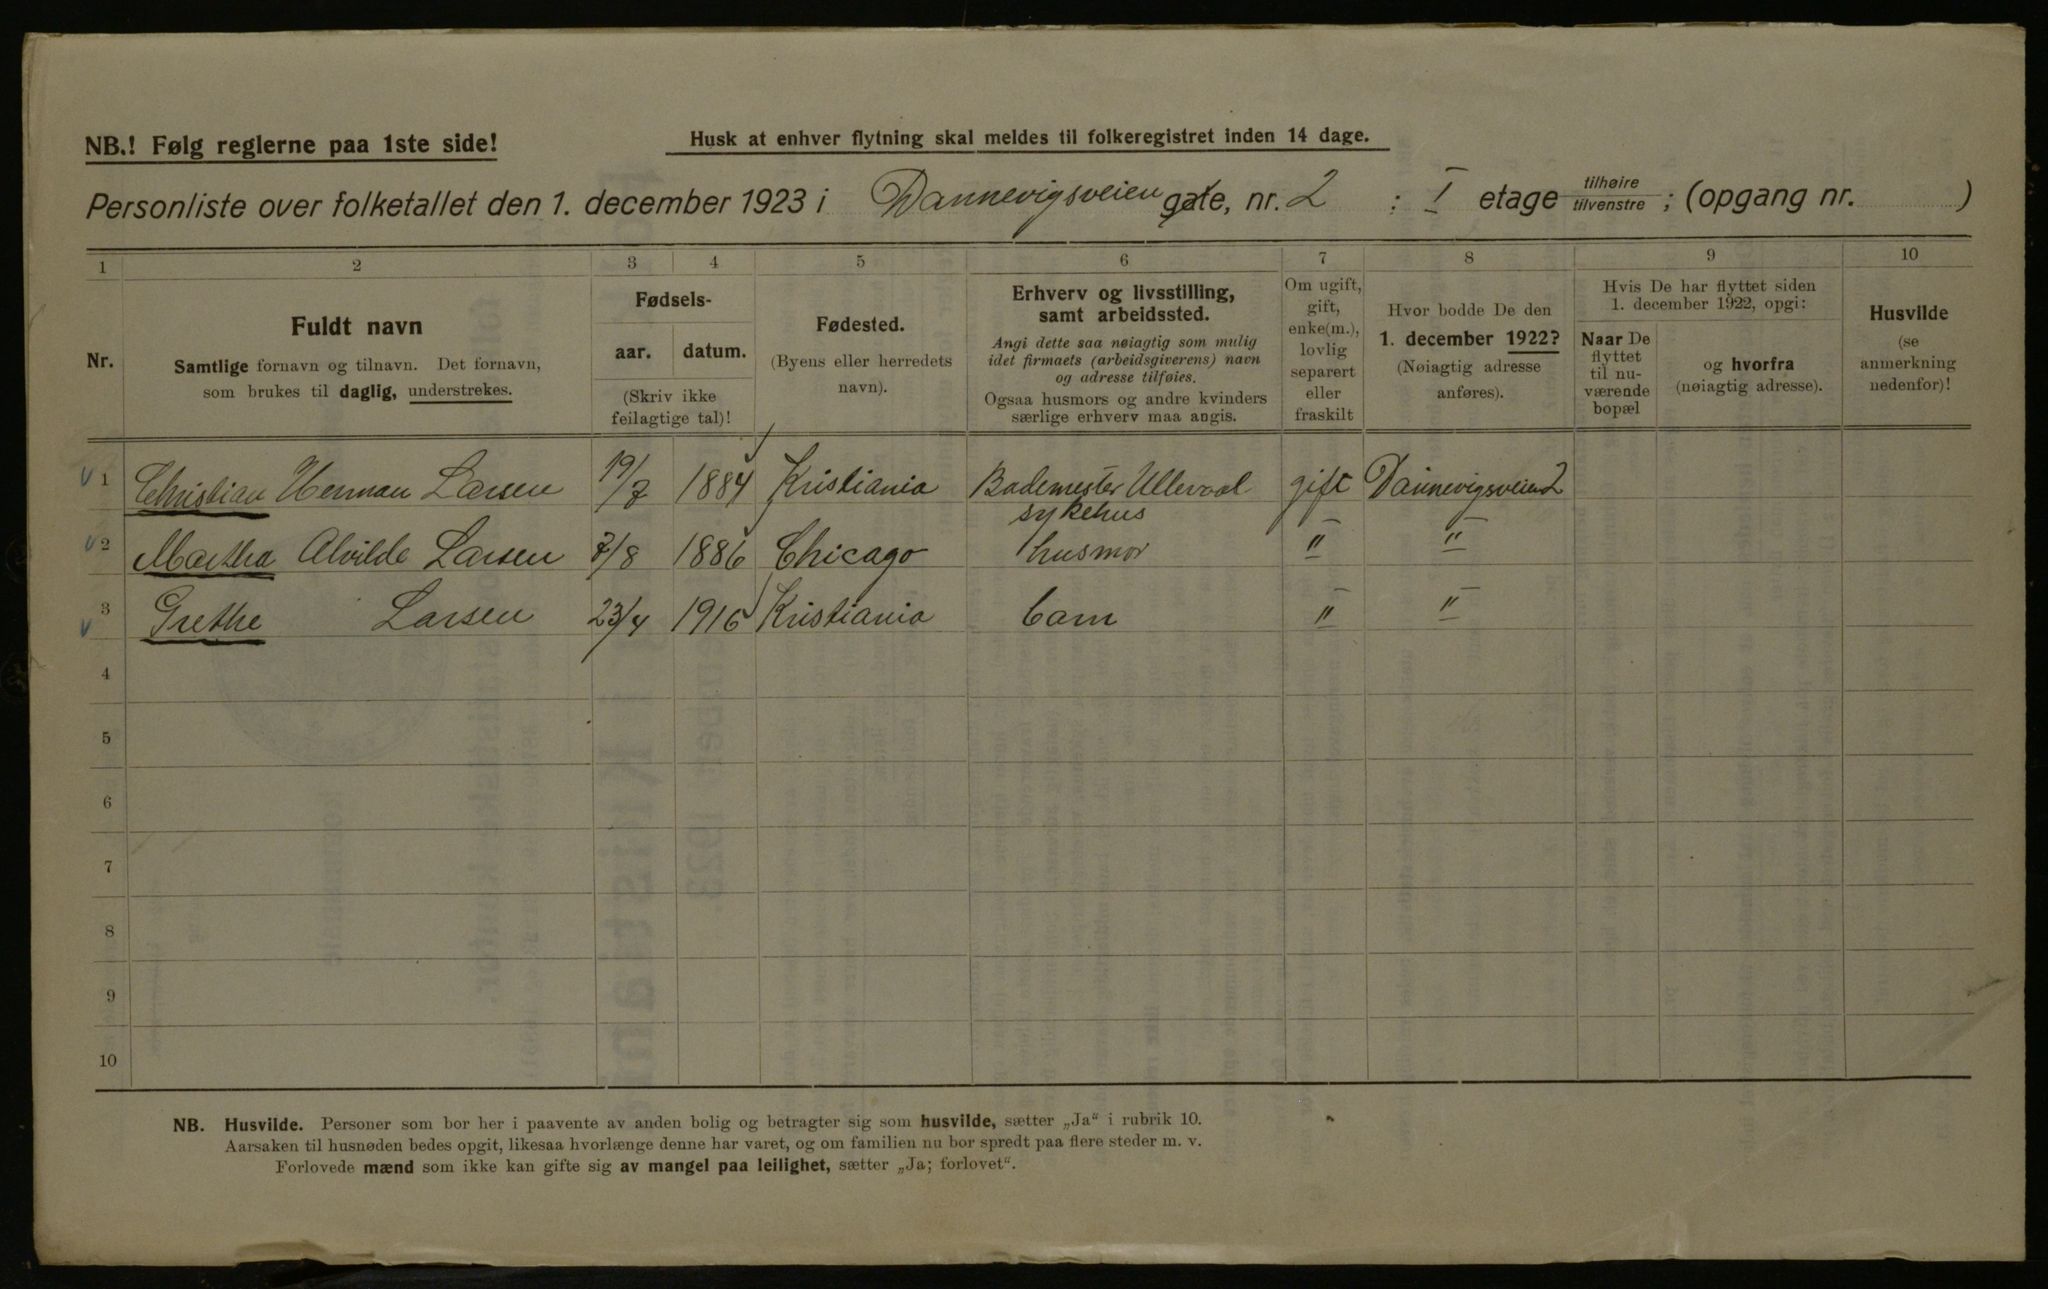 NB.! Følg reglerne paa 1ste side!
Husk at enhver flytning skal meldes til folkeregistret inden 14 dage.
Personliste over folketallet den 1. december 1923 i Dannevigsveien gate, nr. 2 : I etage tilhøire tilvenstre ; (opgang nr. )
1 2 3 4 5 6 7 8 9 10
Nr.
Fuldt navn
Samtlige fornavn og tilnavn. Det fornavn,
som brukes til daglig, understrekes.
Fødsels-
aar. datum.
(Skriv ikke
feilagtige tal)!
Fødested.
(Byens eller herredets
navn).
Erhverv og livsstilling,
samt arbeidssted.
Angi dette saa nøiagtig som mulig
idet firmaets (arbeidsgiverens) navn
og adresse tilføies.
Ogsaa husmors og andre kvinders
særlige erhverv maa angis.
Om ugift,
gift,
enke(m.),
lovlig
separert
eller
fraskilt
Hvor bodde De den
1. december 1922?
(Nøiagtig adresse
anføres).
Hvis De har flyttet siden
1. december 1922, opgi:
Naar De
flyttet
til nu-
værende
bopæl
og hvorfra
(nøiagtig adresse).
Husvilde
(se
anmerkning
nedenfor)!
1 Christian Herman Larsen 19/7 1884 Kristiania Bademester Ullevaal gift Dannevigsveien 2
sykehus
2 Martha Alvilde Larsen 7/8 1886 Chicago husmor " "
3 Grethe Larsen 23/4 1916 Kristiania barn " "
4
5
6
7
8
9
10
NB. Husvilde. Personer som bor her i paavente av anden bolig og betragter sig som husvilde, sætter „Ja“ i rubrik 10.
Aarsaken til husnøden bedes opgit, likesaa hvorlænge denne har varet, og om familien nu bor spredt paa flere steder m. v.
Forlovede mænd som ikke kan gifte sig av mangel paa leilighet, sætter „Ja; forlovet“.